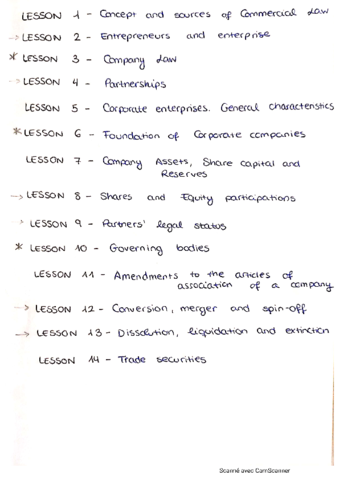 LESSON 1 - Concept and sources of Commercial Law
-> LESSON 2 - Entrepreneurs and enterprise
* LESSON 3 - Company Law
-> LESSON 4 - Partnerships
LESSON 5 - Corporate enterprises. General characteristics
* LESSON 6 - Foundation of Corporate companies
LESSON 7 - Company Assets, Share capital and
Reserves
-> LESSON 8 - Shares and Equity participations
-> LESSON 9 - Partners' legal status
* LESSON 10 - Governing bodies
LESSON 11 - Amendments to the articles of
association of a company
-> LESSON 12 - Conversion, merger and spin-off
-> LESSON 13 - Dissolution, liquidation and extinction
LESSON 14 - Trade securities
Scanné avec CamScanner